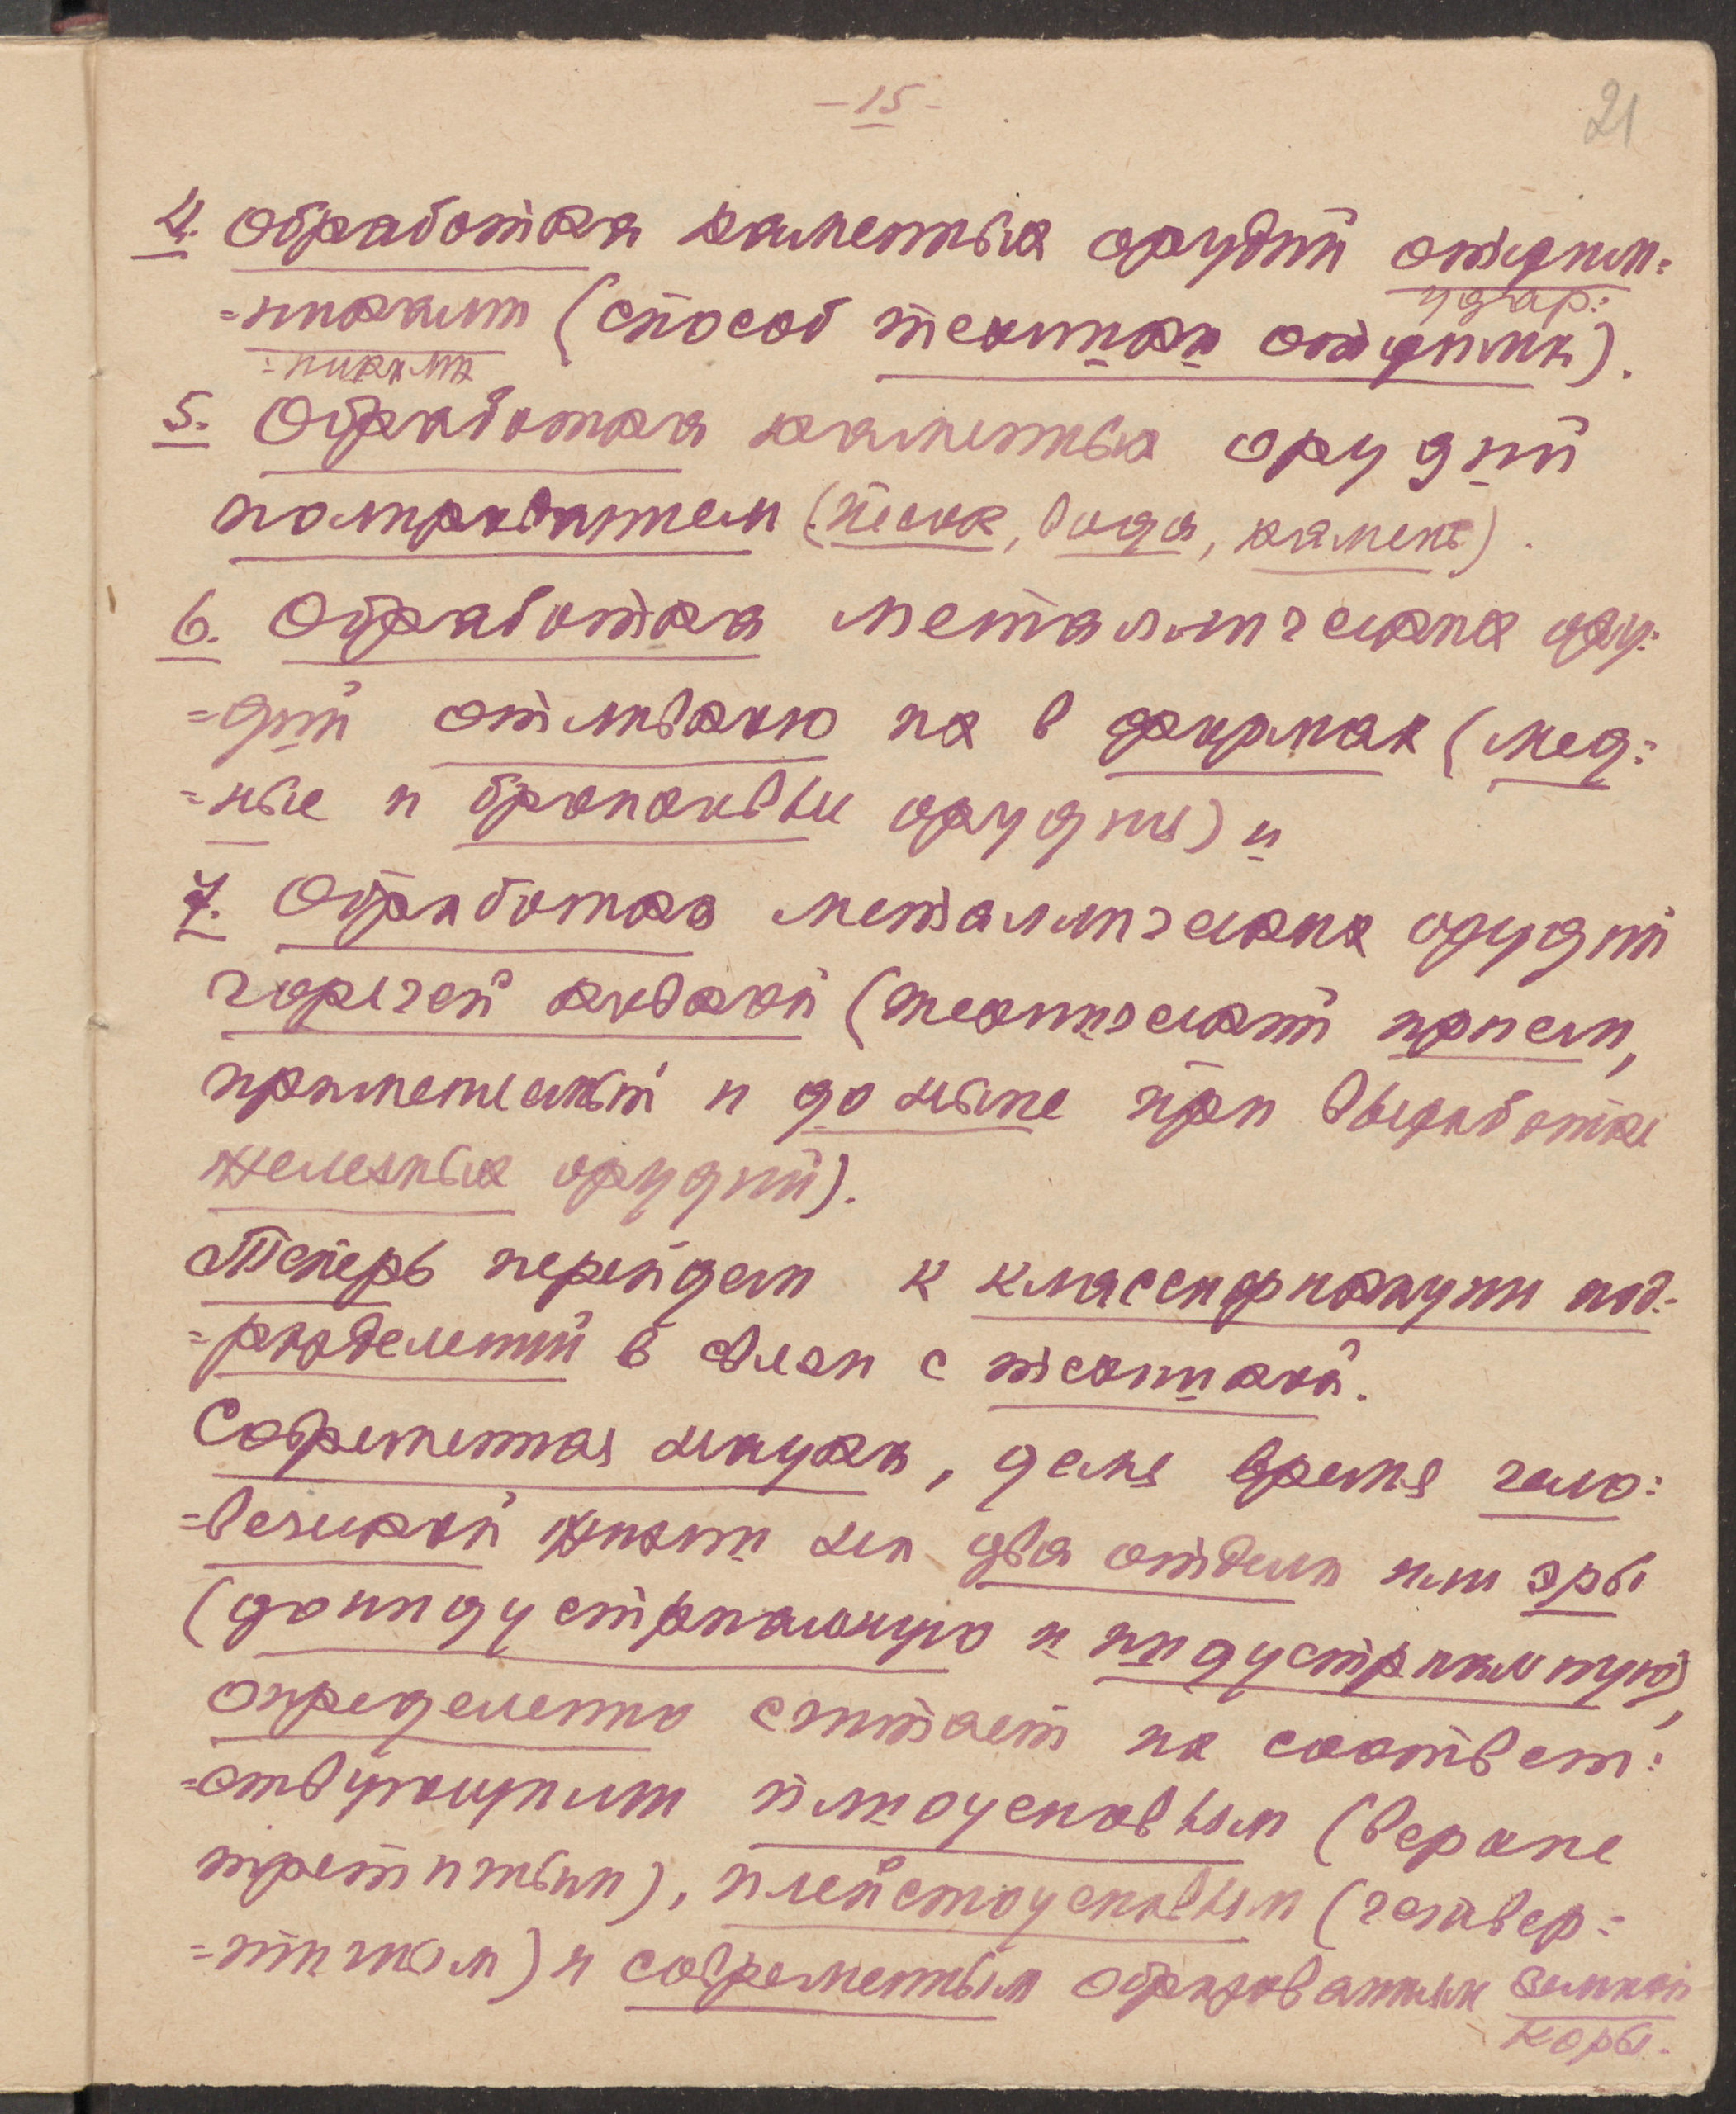 -15-
21
4. Обработка каменных орудий отщип=
=никами (способ техники отщипки).
удар:
:никами
5. Обработка каменных орудий
полированием (песок, вода, камень).
6. Обработка металлических ору:
=дий отливкою их в формах (мед:
=ные и бронзовые орудия) и
7. Обработка металлических орудий
горячей ковкой (технический прием,
применяемый и до ныне при выработке
железных орудий).
Теперь перейдем к классификации под:
=разделений в связи с техникой.
Современная наука, деля время чело:
=веческой жизни на два отдела или эры
(доиндустриальную и индустриальную),
определенно считает их соответ:
=ствующими плиоценовым (верхне
третичным), плейстоценовым (четвер:
=тичном) и современным образованиям земной
коры.